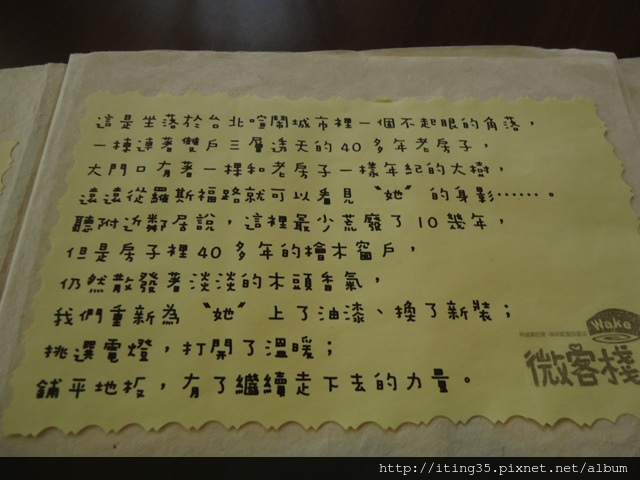 這是坐落於台北喧鬧城市裡一個不起眼的角落，
一棟連著雙戶三層透天的40多年老房子，
大門口有著一棵和老房子一樣年紀的大樹，
遠遠從羅斯福路就可以看見〝她〞的身影……。
聽附近鄰居說，這裡最少荒廢了10幾年，
但是房子裡40多年的檜木窗戶，
仍然散發著淡淡的木頭香氣，
我們重新為〝她〞上了油漆、換了新裝；
挑選電燈，打開了溫暖；
鋪平地板，有了繼續走下去的力量。
Waka
微客棧
http://iting35.pixnet.net/album